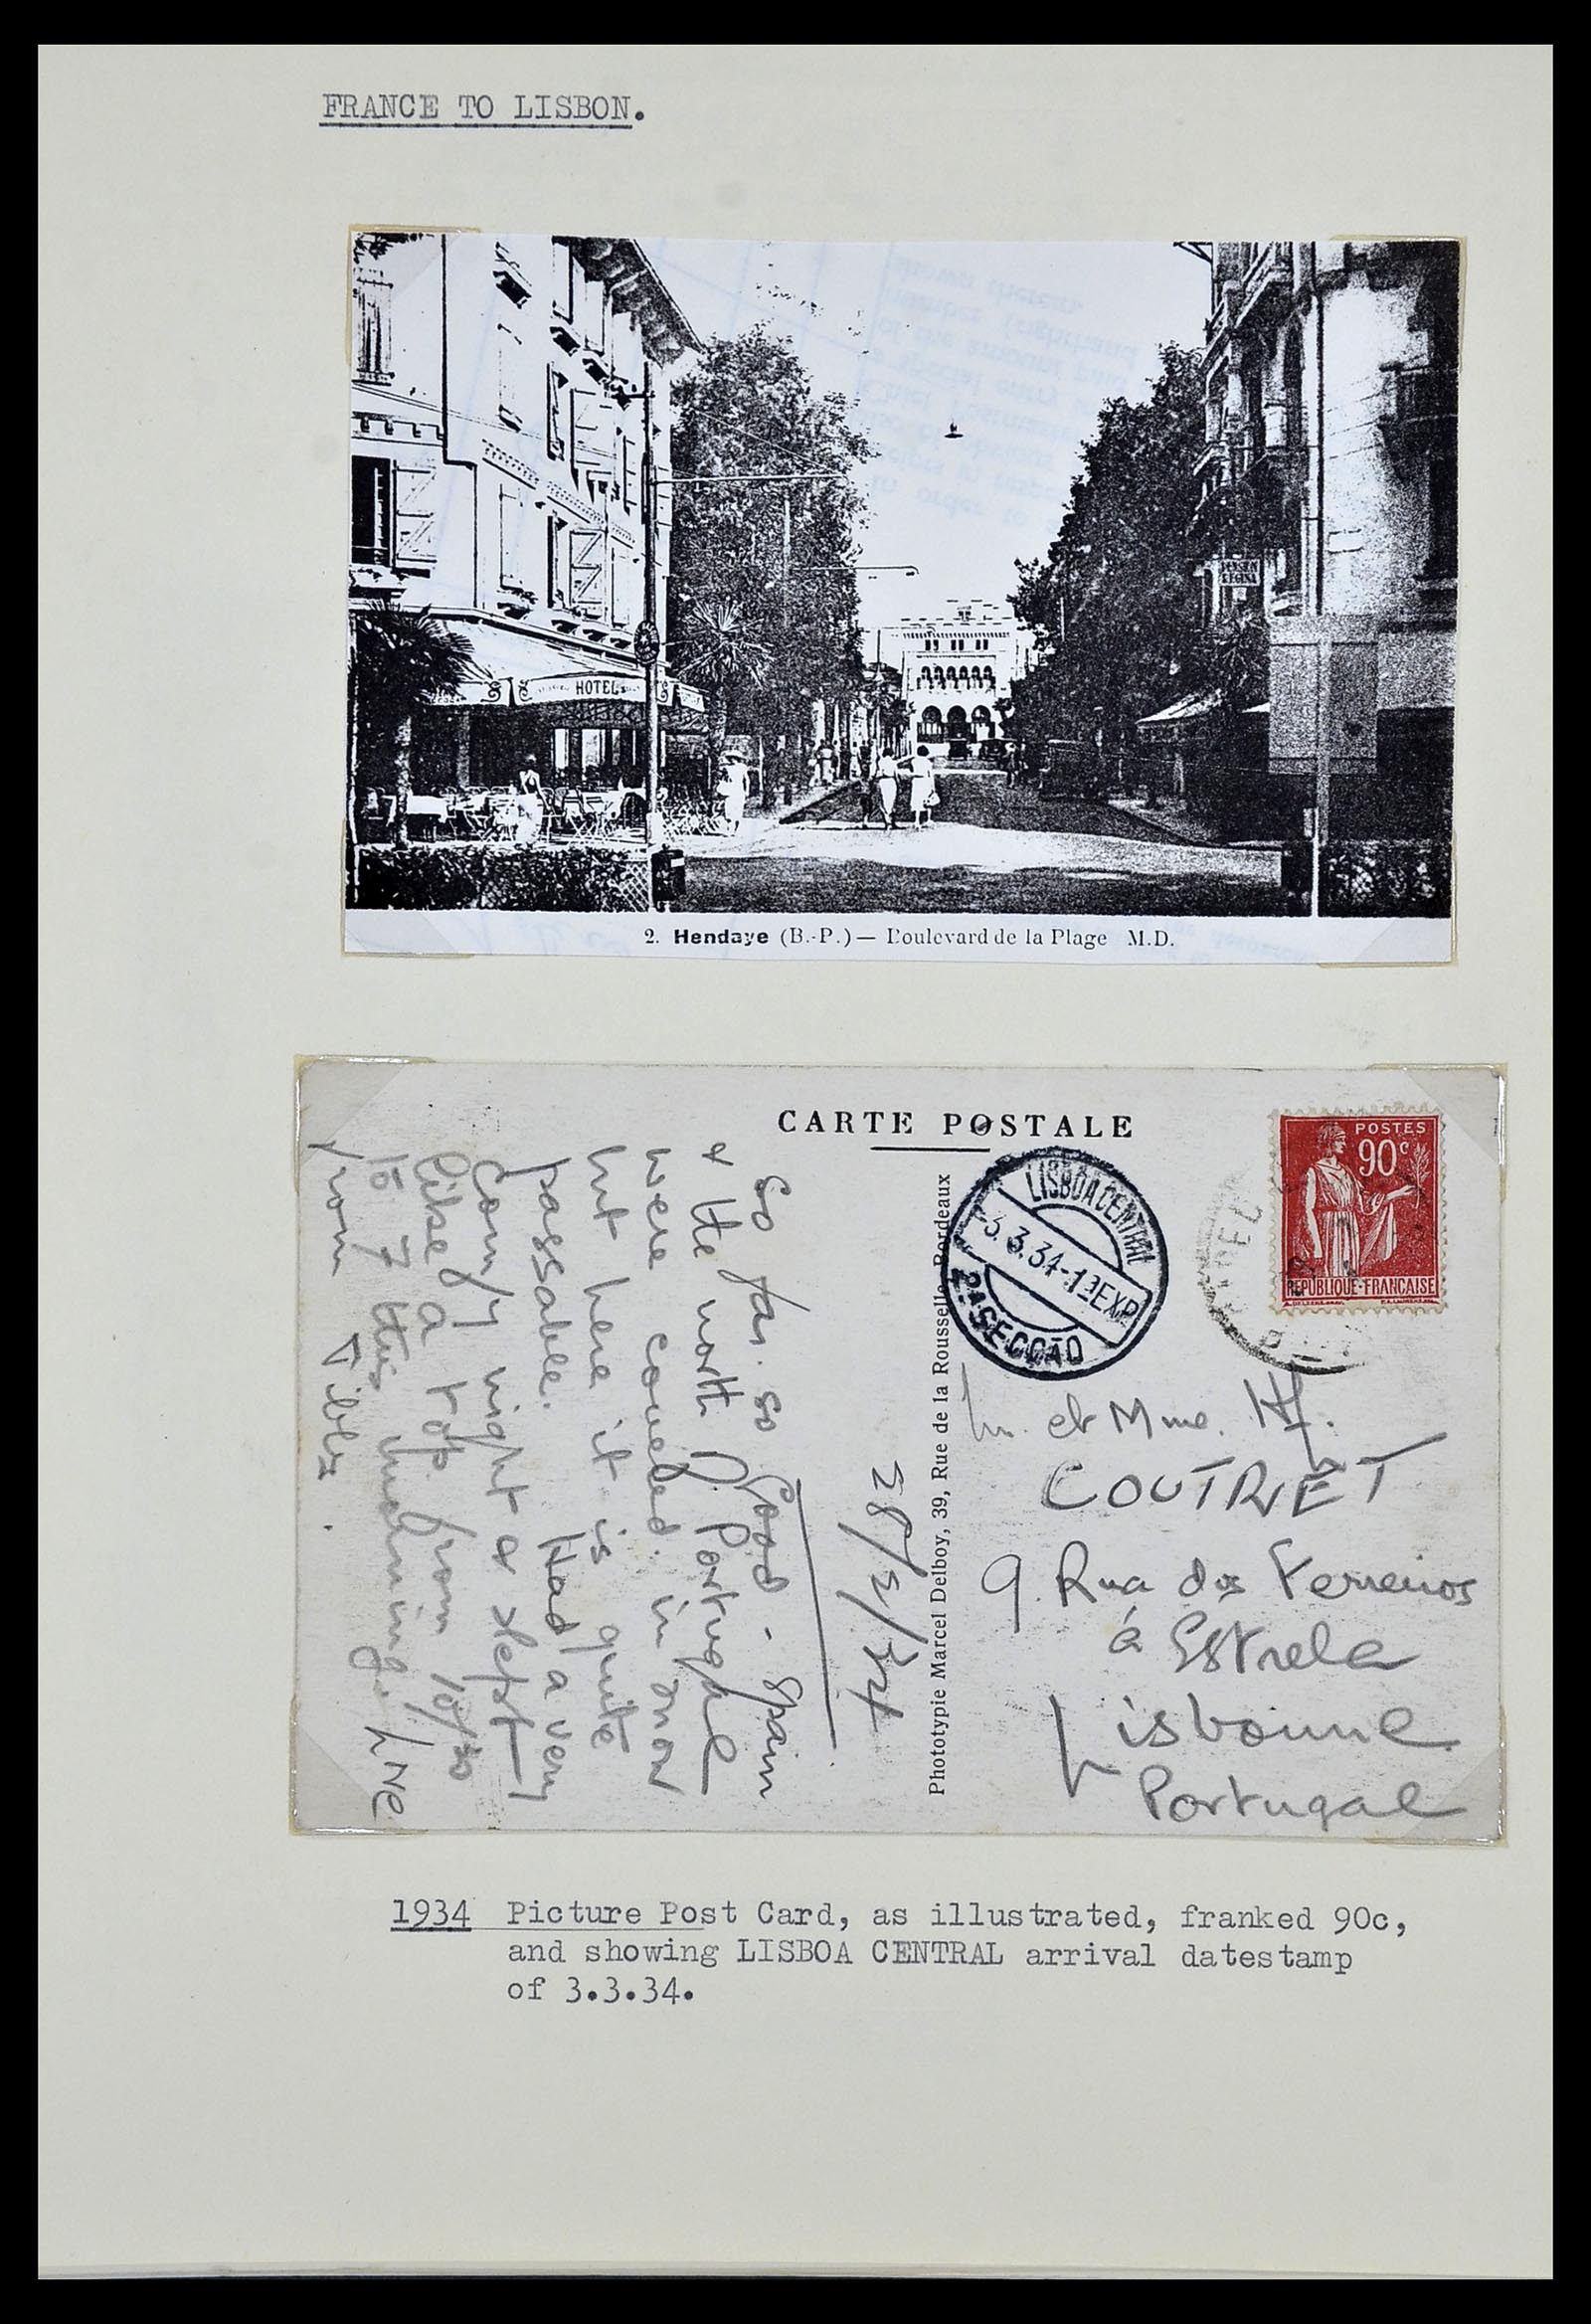 FRANCE TO LISBON.
HOTEL
PENSION
REGINA
2. Hendaye (B.-P.) — Boulevard de la Plage M.D.
CARTE POSTALE
POSTES
90c
REPUBLIQUE-FRANCAISE
LISBOA CENTRAL
3.3.34-1ªEXP
2ª SECÇÃO
Phototypie Marcel Delboy, 39, Rue de la Rousselle, Bordeaux
28/2/34
So far. so Good - Spain
& the north of Portugal
were covered in snow
but here it is quite
passable. Had a very
comfy night & slept
like a top from 10/30
to 7 this morning. Love
from Tibby.
et Mme. H.
COUTRET
9. Rua dos Ferreiros
á Estrela
Lisbonne
Portugal
1934 Picture Post Card, as illustrated, franked 90c,
and showing LISBOA CENTRAL arrival datestamp
of 3.3.34.